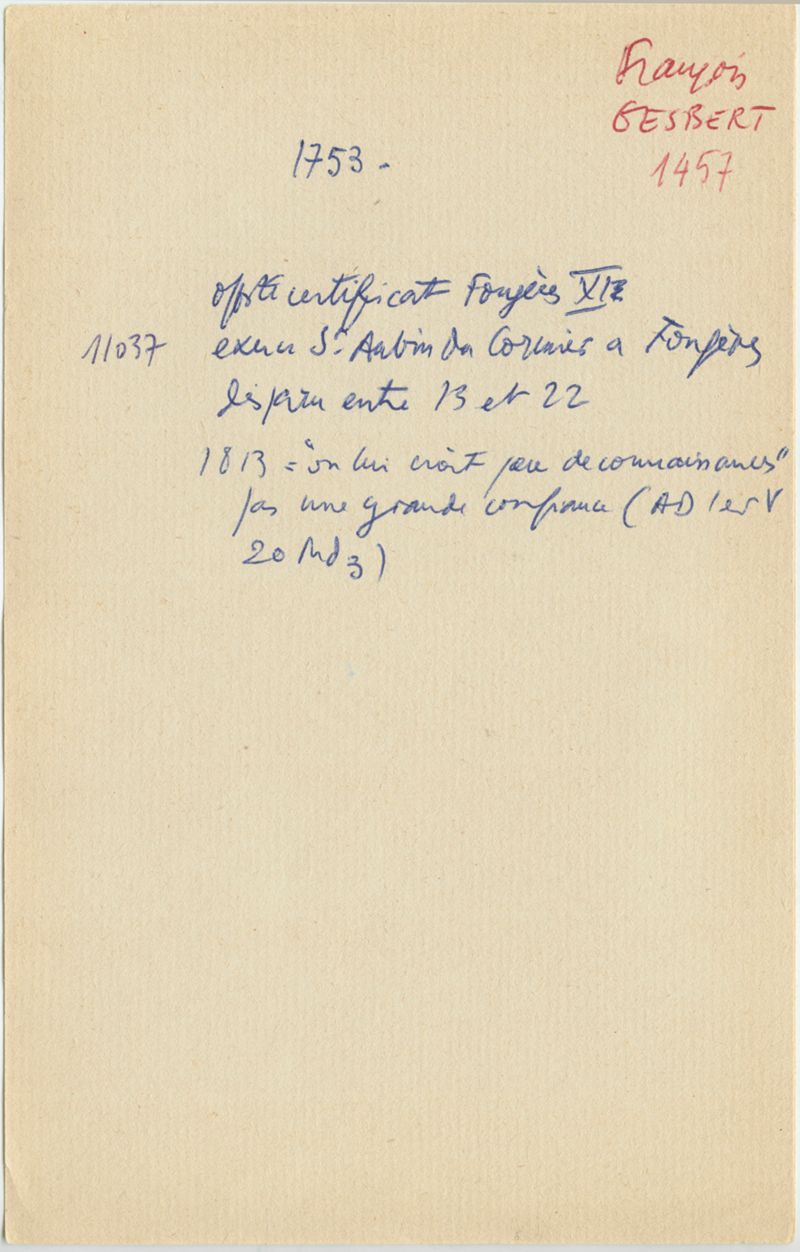 François
GESBERT
1457
1753 -
offte certificat Fougères XIE
11037 exerce St Aubin du Cormier a Fougères
disparu entre 13 et 22
1813 = "on lui croit peu de connaissances"
pas une grande confiance (AD I et V
20 Md 3)